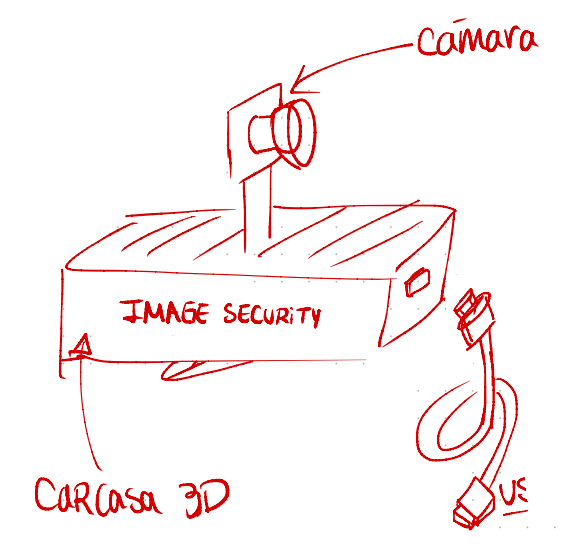 Cámara
IMAGE SECURITY
CARCASA 3D